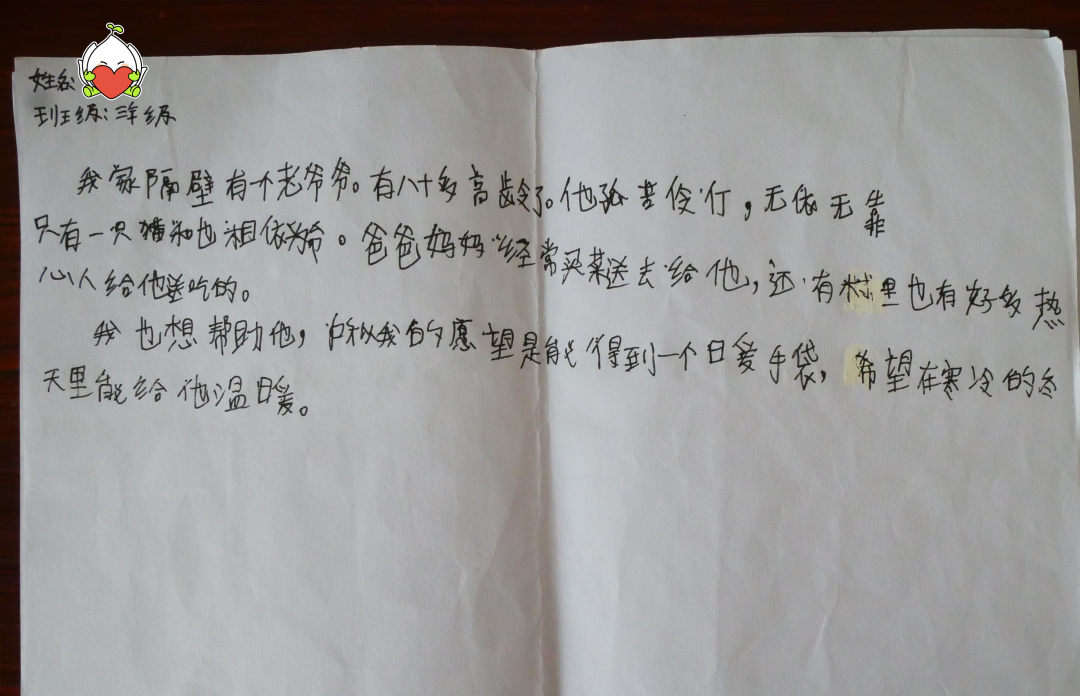 姓名:
班级:三年级
我家隔壁有一个老爷爷。有八十多高龄了。他孤苦伶仃,无依无靠
只有一只猫和他相依为命。爸爸妈妈经常买菜送去给他,还有村里也有好多热
心人给他送吃的。
我也想帮助他,所以我的愿望是能得到一个暖手袋,希望在寒冷的冬
天里能给他温暖。